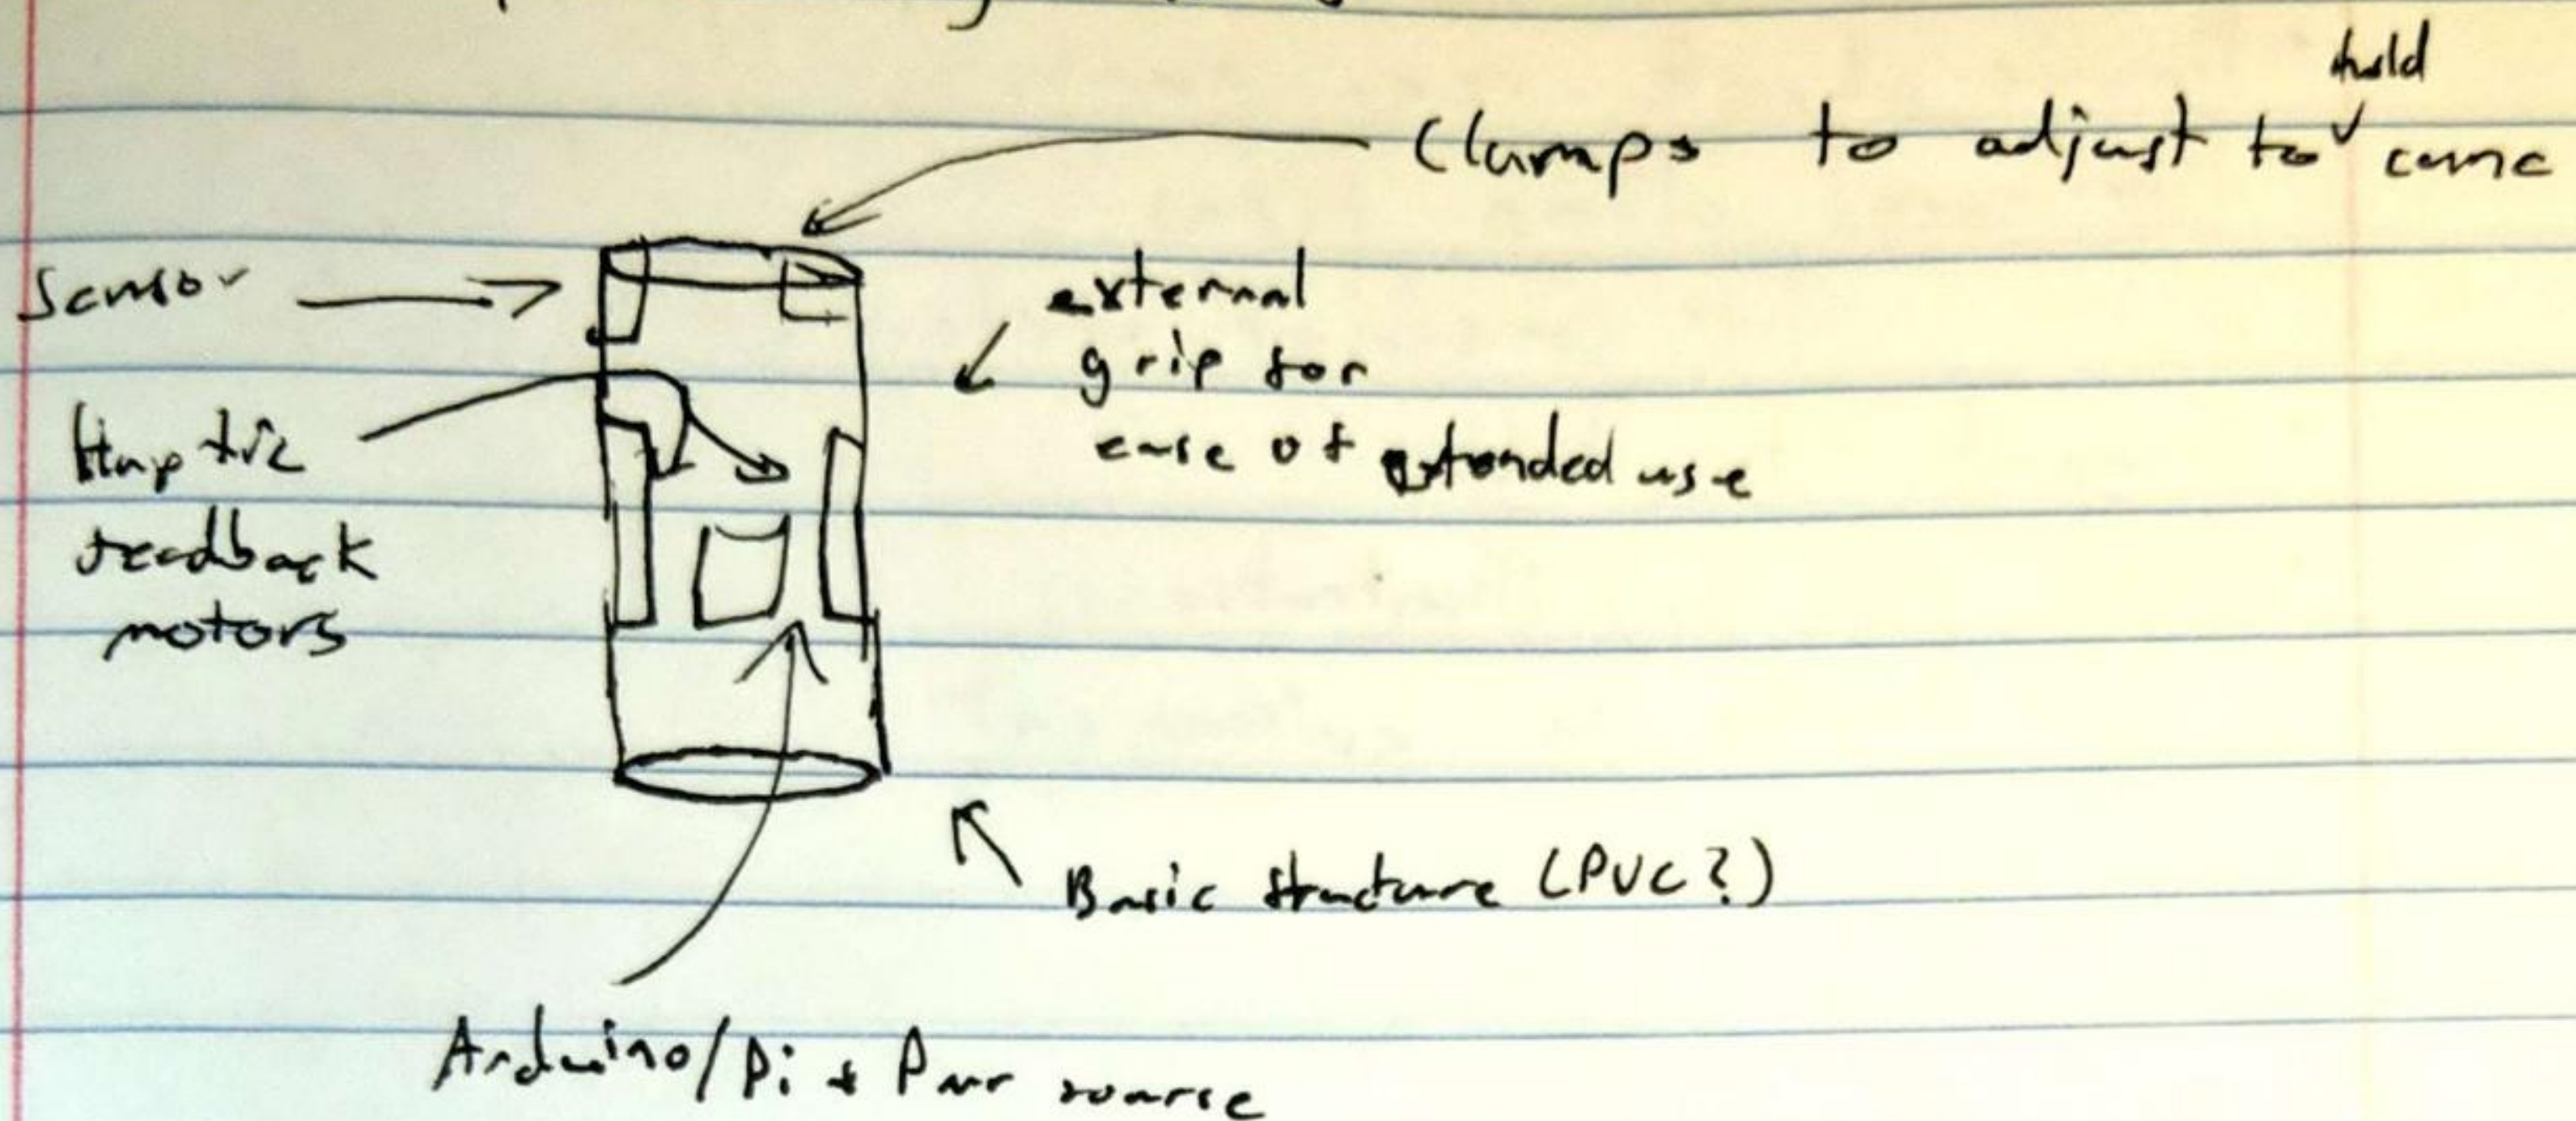 hold
Clamps to adjust to cane
Sensor
external
grip for
ease of extended use
Haptic
feedback
motors
Basic structure (PVC?)
Arduino/Pi + Pwr sourse